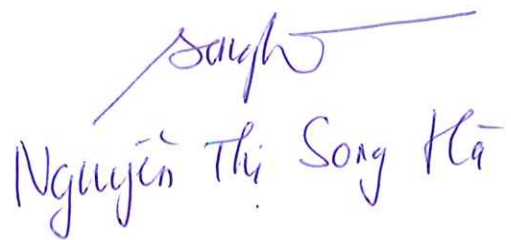 Songhà
Nguyễn Thị Song Hà